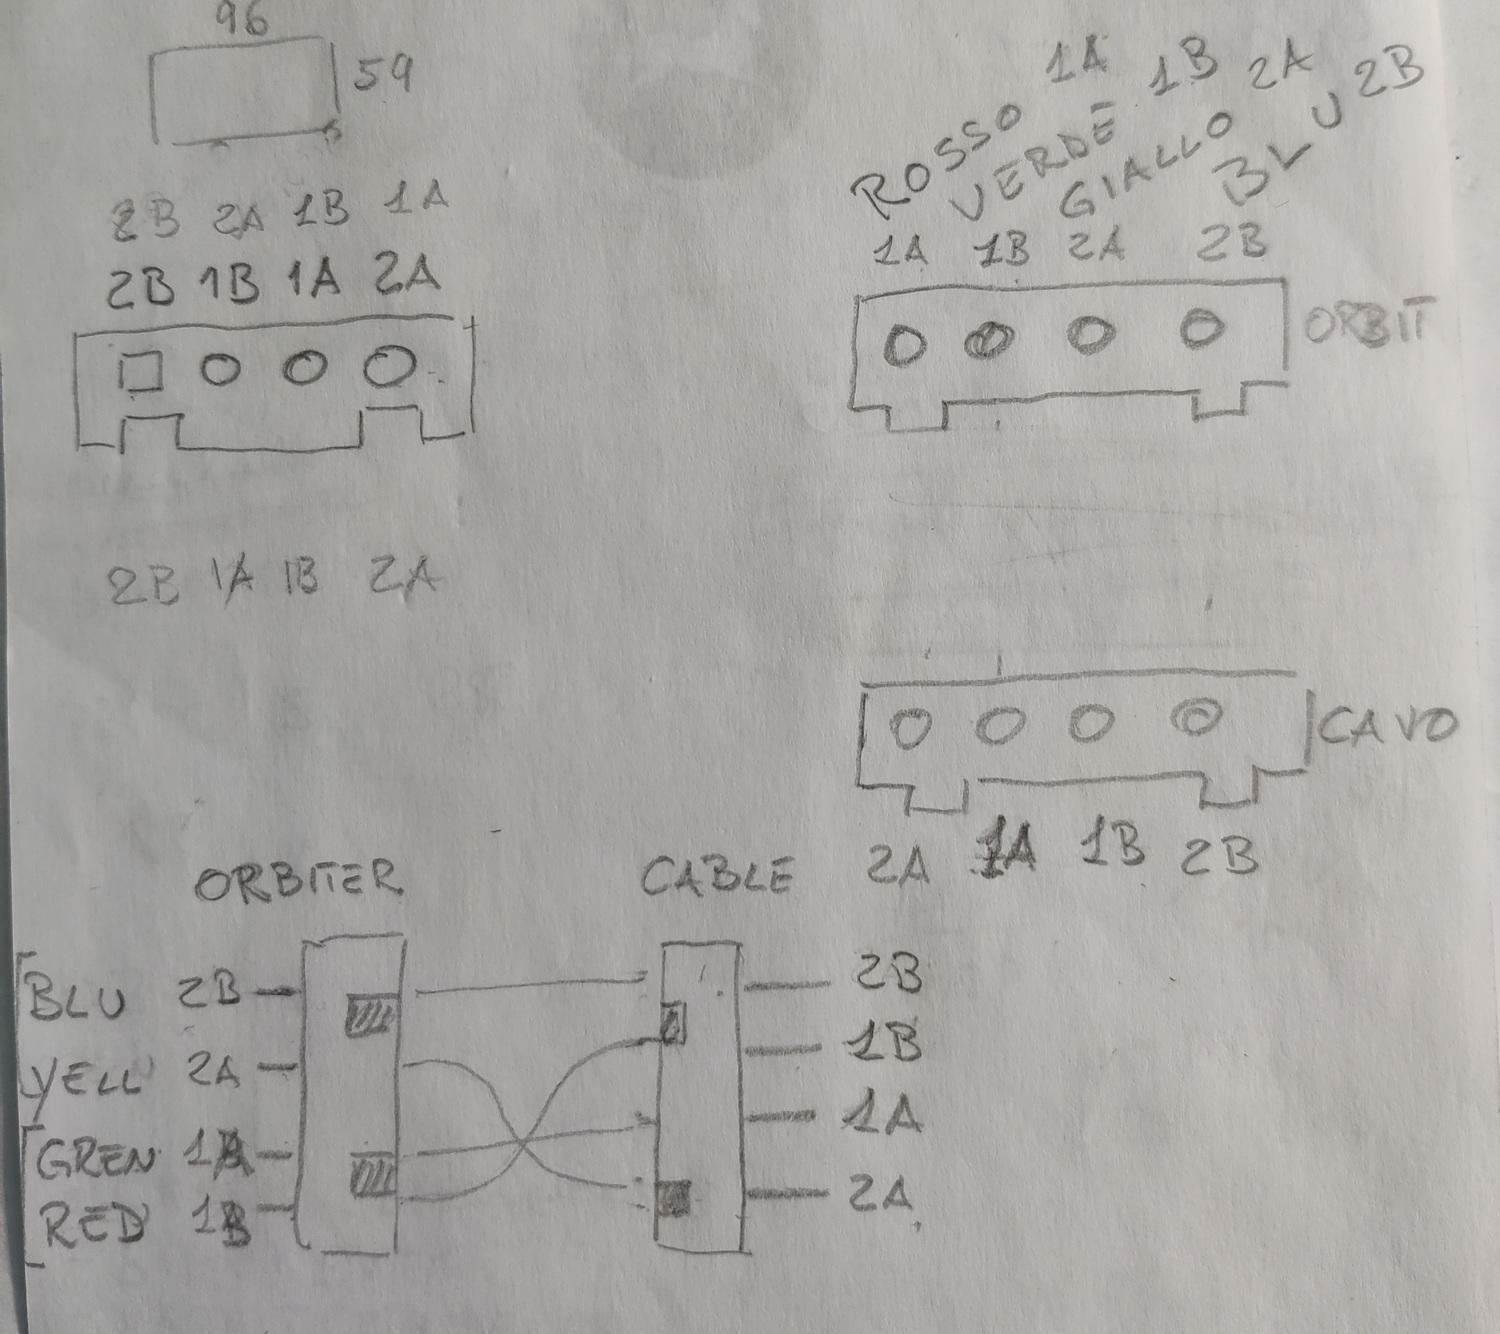 96
59
2B 2A 1B 1A
2B 1B 1A 2A
2B 1A 1B 2A
1A 1B 2A 2B
ROSSO VERDE GIALLO BLU
1A 1B 2A 2B
ORBIT
CAVO
2A 1A 1B 2B
ORBITER CABLE
BLU 2B 2B
YELL 2A 1B
GREN 1A 1A
RED 1B 2A